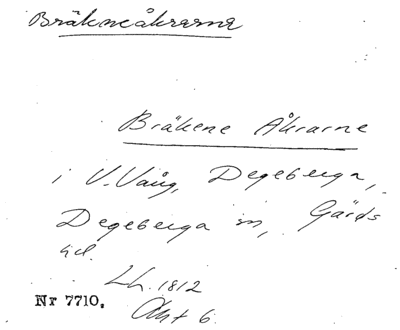 Bräkneåkrarna
Bräkene Åkrarne
i V. Vång, Degeberga,
Degeberga sn, Gärds
hd.
Lh. 1812
Akt 6.
Nr 7710.